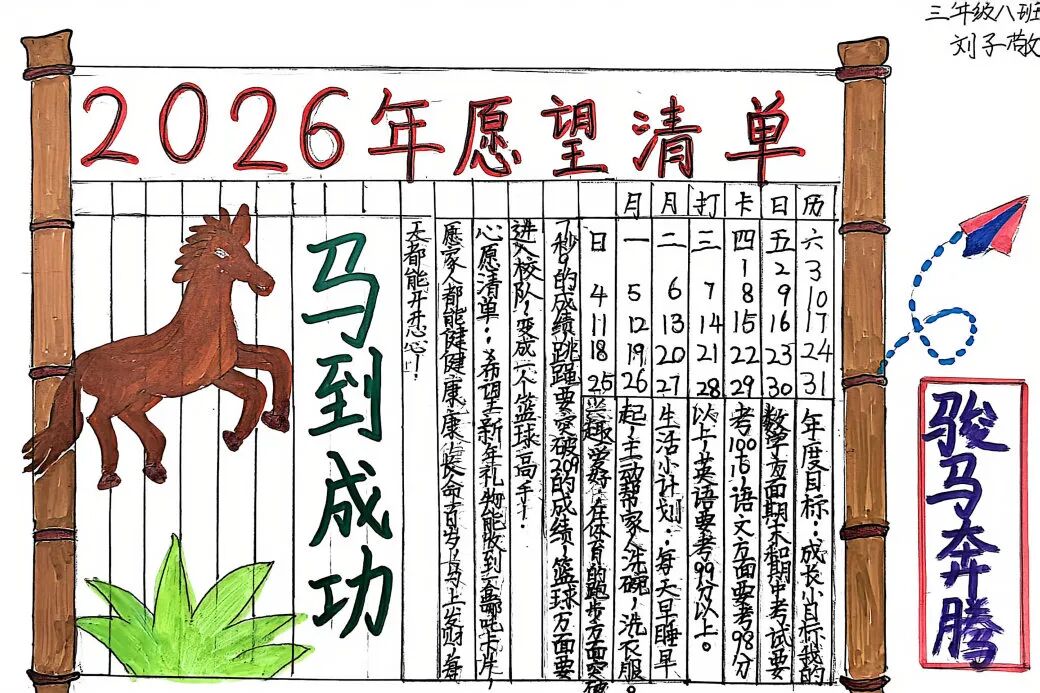 三年级八班
刘子敬
2026年愿望清单
月月打卡日历
日 一 二 三 四 五 六
1 2 3
4 5 6 7 8 9 10
11 12 13 14 15 16 17
18 19 20 21 22 23 24
25 26 27 28 29 30 31
年度目标：成长小目标我的
数学方面期末和期中考试要
考100分，语文方面要考98分
以上，英语要考99分以上。
生活小计划：每天早睡早
起，主动帮家人洗碗，洗衣服。
兴趣爱好：在体育的跑步方面突破
7秒9的成绩跳绳要突破209的成绩，篮球方面要
进入校队，变成一个篮球高手！
心愿清单：希望新年礼物能收到哪吒卡片，
愿家人都能健健康康，长命百岁，马上发财，每
天都能开开心心！
马到成功
骏马奔腾